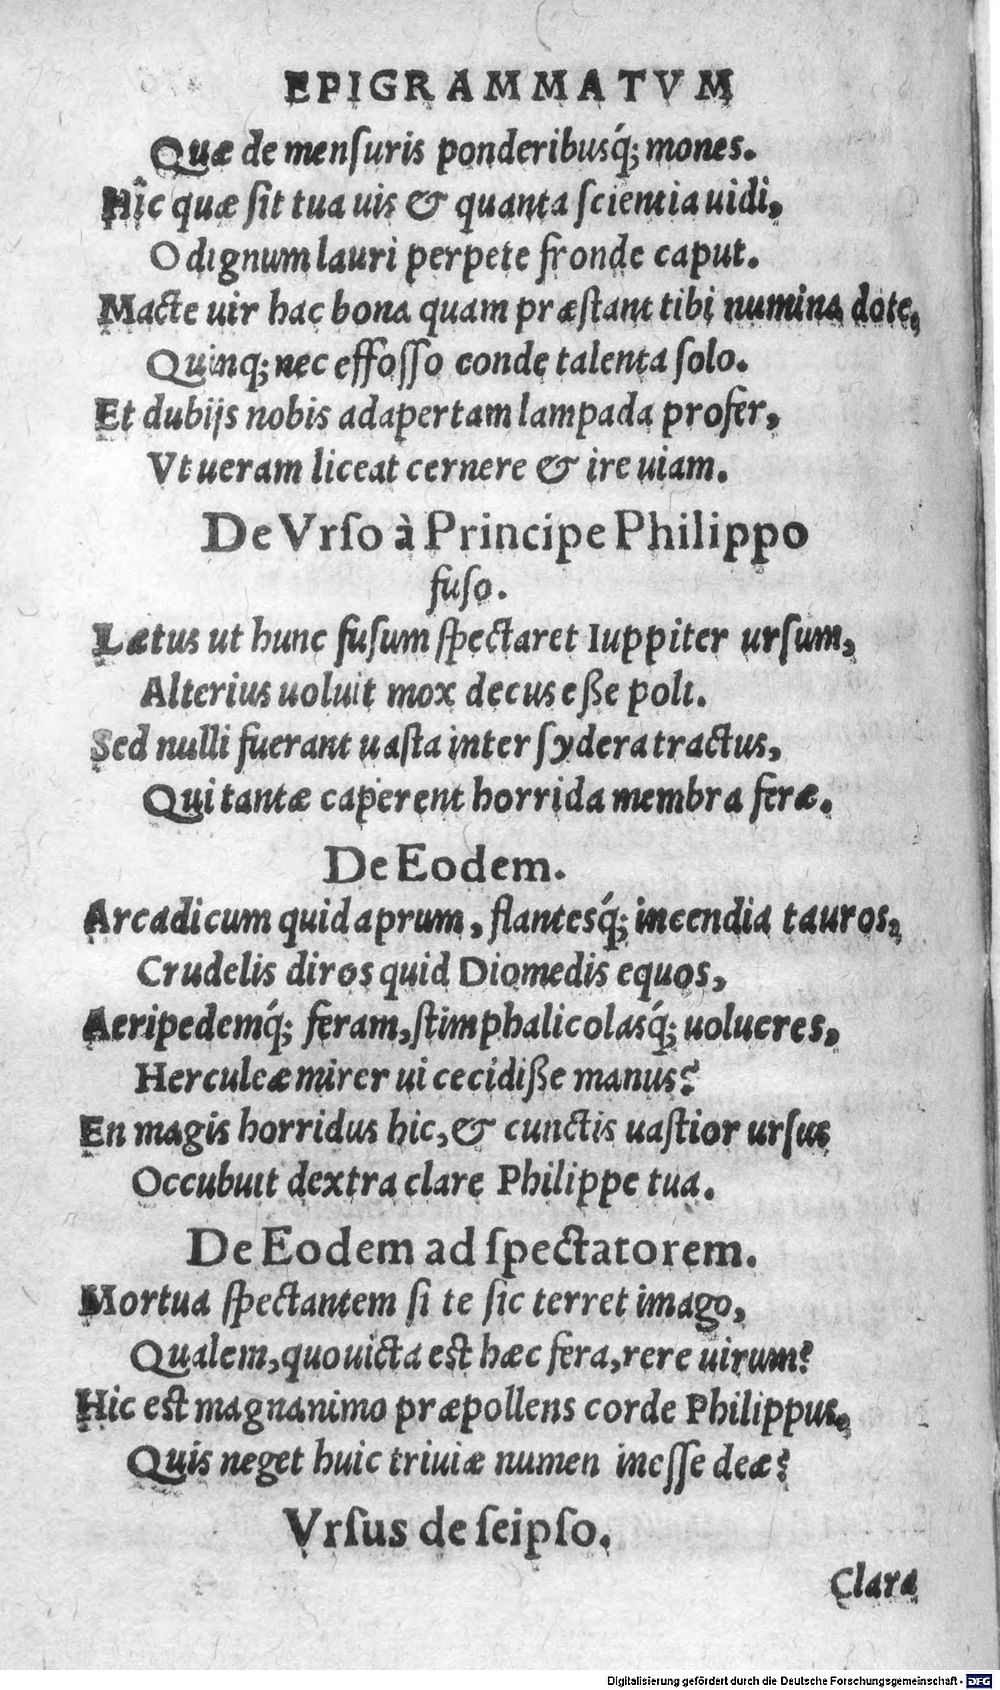 EPIGRAMMATVM
Quæ de menſuris ponderibusq́; mones.
Hîc quæ ſit tua uis & quanta ſcientia uidi,
O dignum lauri perpete fronde caput.
Macte uir hac bona quam præſtant tibi numina dote,
Quinq; nec effoſſo conde talenta ſolo.
Et dubijs nobis adapertam lampada profer,
Vt ueram liceat cernere & ire uiam.
De Vrſo à Principe Philippo
fuſo.
Lætus ut hunc fuſum ſpectaret Iuppiter urſum,
Alterius uoluit mox decus eſſe poli.
Sed nulli fuerant uaſta inter ſydera tractus,
Qui tantæ caperent horrida membra feræ.
De Eodem.
Arcadicum quid aprum, flantesq́; incendia tauros,
Crudelis diros quid Diomedis equos,
Aeripedemq́; feram, ſtimphalicolasq́; uolucres,
Herculeæ mirer ui cecidiſſe manus?
En magis horridus hic, & cunctis uaſtior urſus
Occubuit dextra clare Philippe tua.
De Eodem ad ſpectatorem.
Mortua ſpectantem ſi te ſic terret imago,
Qualem, quo uicta est hæc fera, rere uirum?
Hic est magnanimo præpollens corde Philippus,
Quis neget huic triuiæ numen ineſſe deæ?
Vrſus de ſeipſo.
Clara
Digitalisierung gefördert durch die Deutsche Forschungsgemeinschaft - DFG